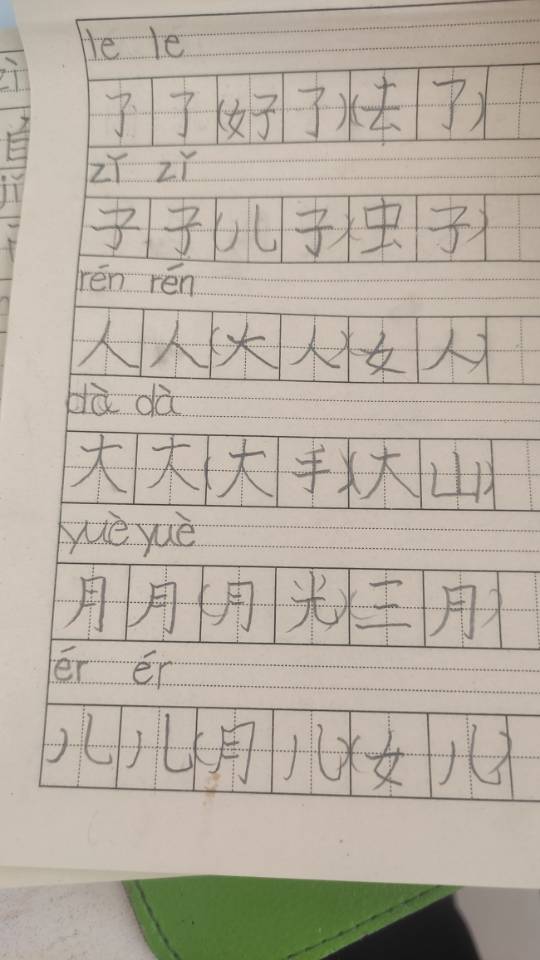 le le
了了(好了)(去了)
zǐ zǐ
子子(儿子)(虫子)
rén rén
人人(大人)(女人)
dà dà
大大(大手)(大山)
yuè yuè
月月(月光)(三月)
ér ér
儿儿(月儿)(女儿)